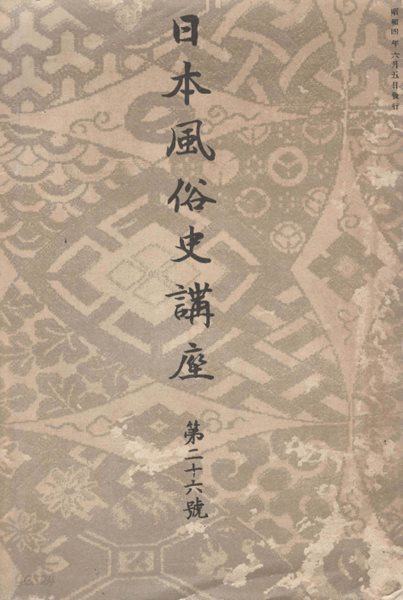 昭和四年六月五日發行
日本風俗史講座
第二十六號